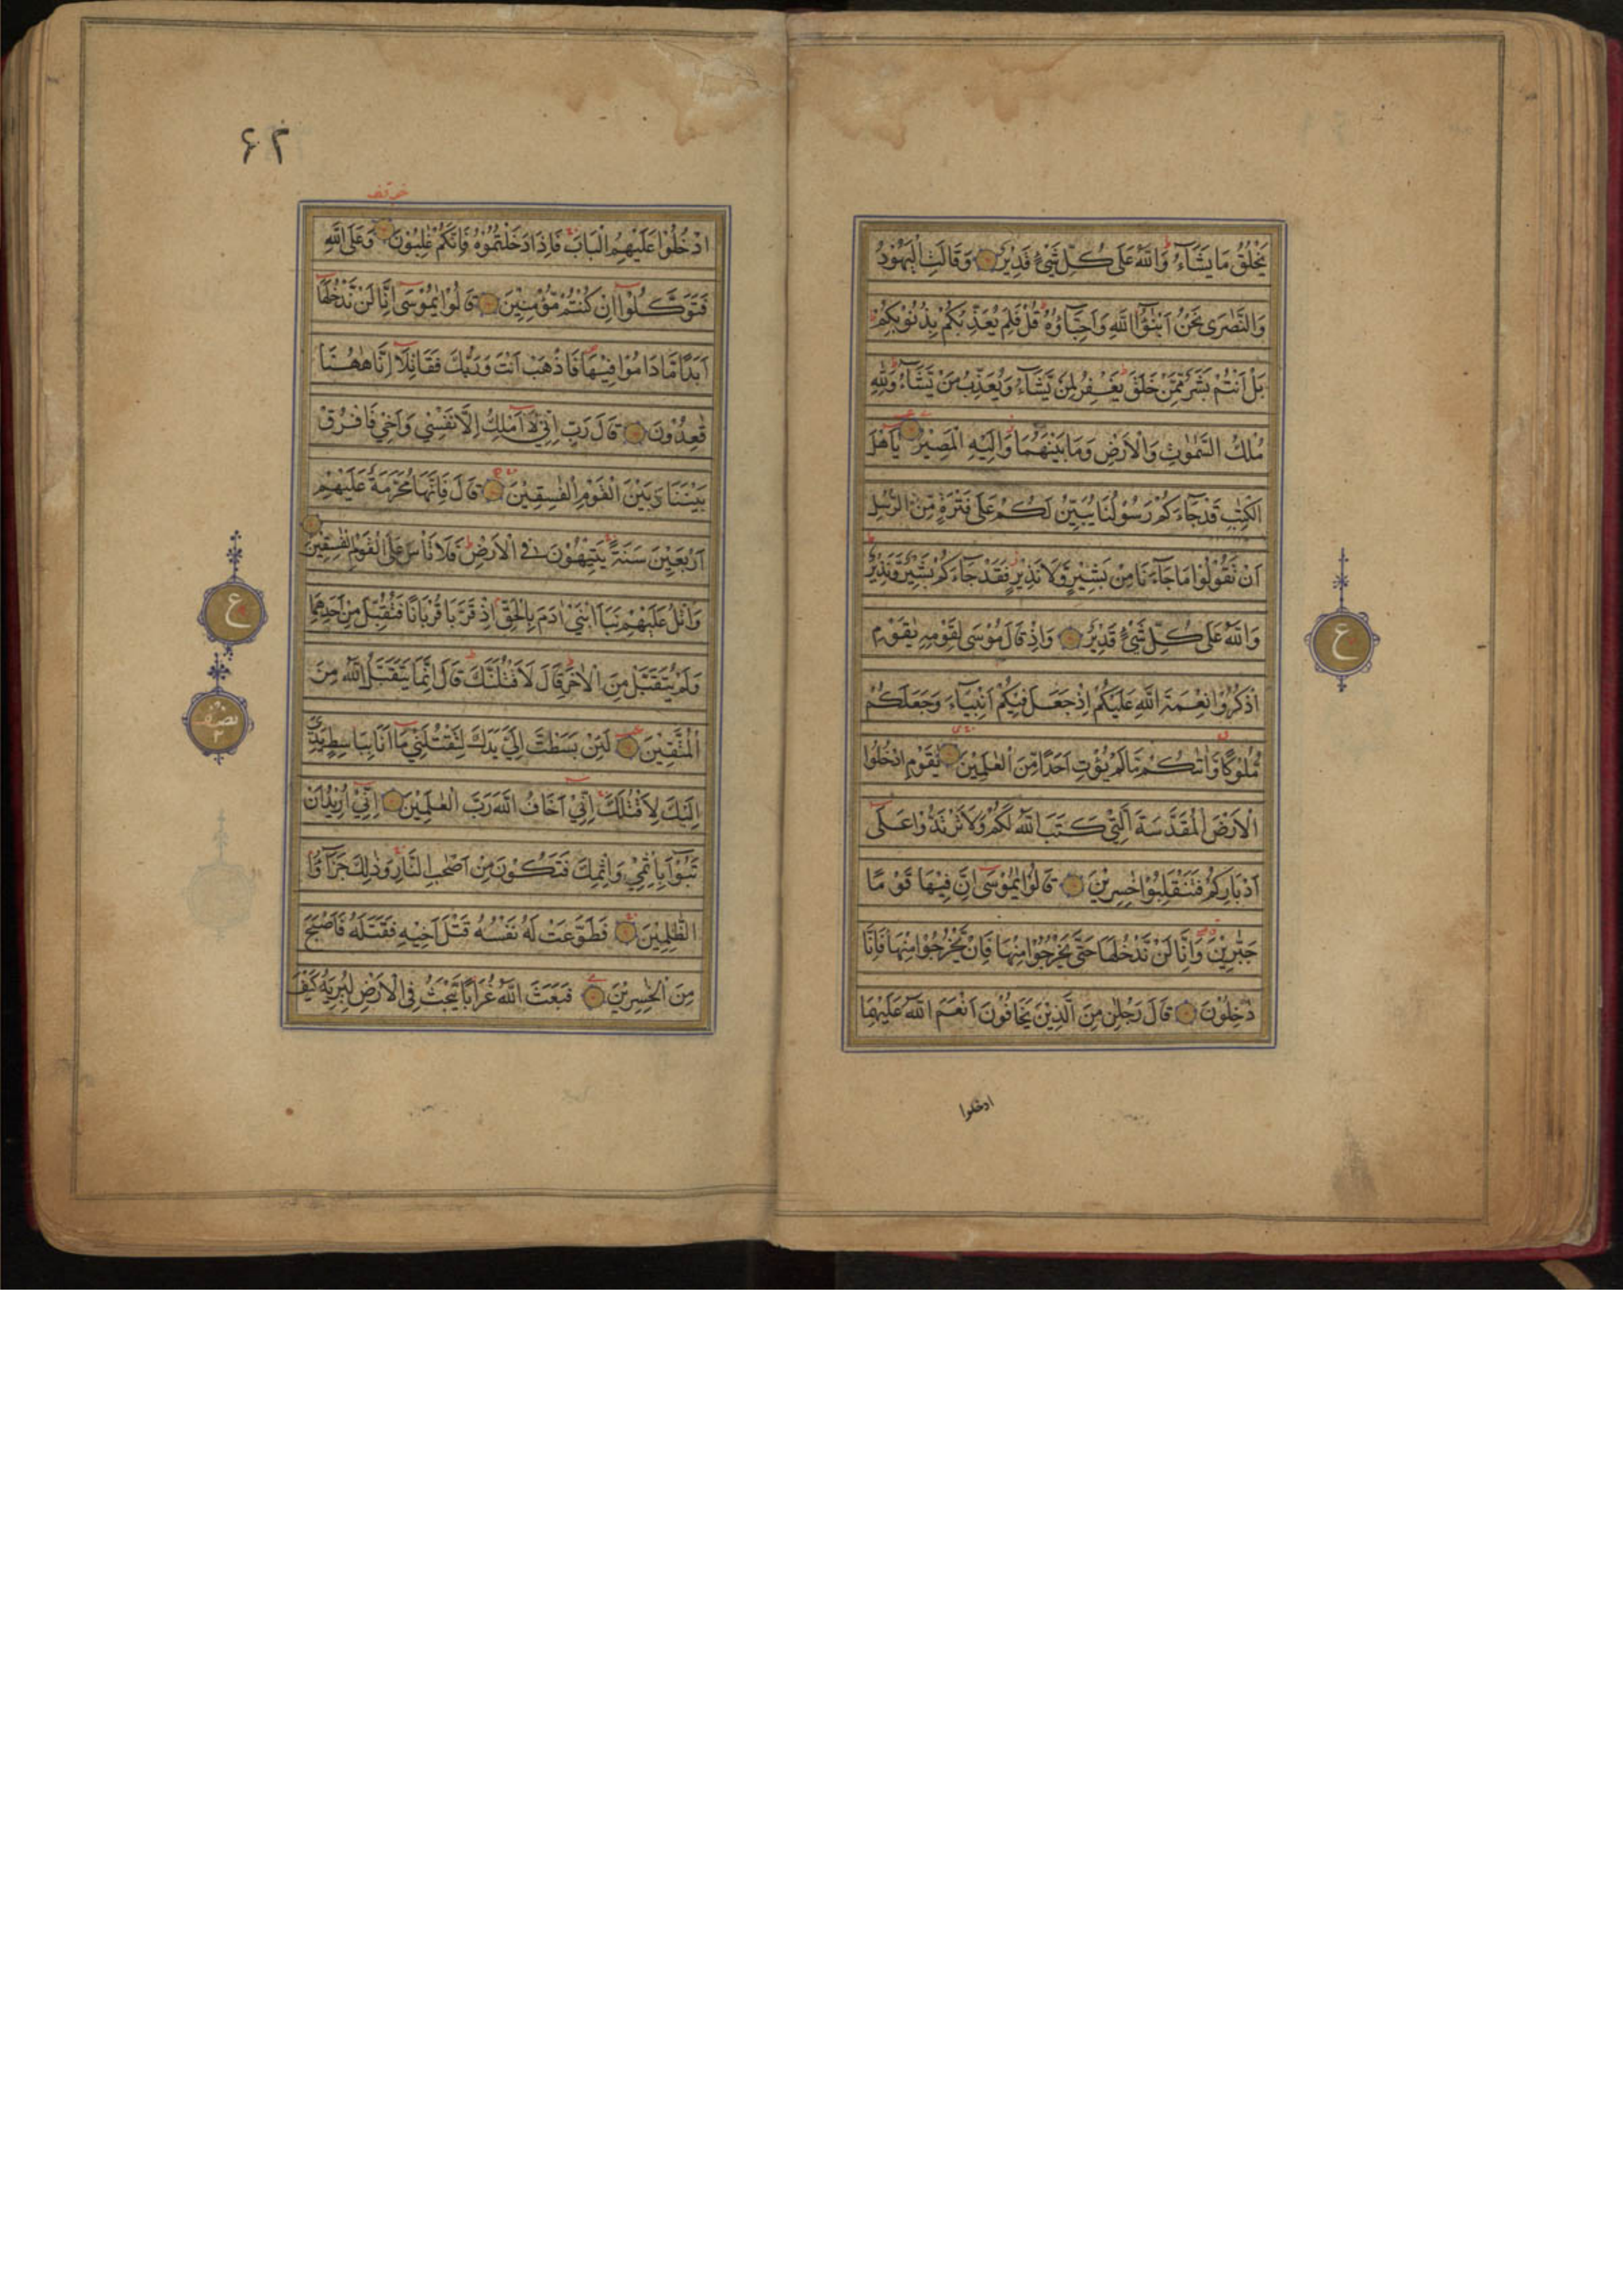 يَخْلُقُ مَا يَشَاۤءُ وَاللّٰهُ عَلٰى كُلِّ شَيْءٍ قَدِيْرٌ وَقَالَتِ الْيَهُوْدُ
وَالنَّصٰرٰى نَحْنُ اَبْنٰۤؤُا اللّٰهِ وَاَحِبَّاۤؤُهٗ قُلْ فَلِمَ يُعَذِّبُكُمْ بِذُنُوْبِكُمْ
بَلْ اَنْتُمْ بَشَرٌ مِّمَّنْ خَلَقَ يَغْفِرُ لِمَنْ يَّشَاۤءُ وَيُعَذِّبُ مَنْ يَّشَاۤءُ وَلِلّٰهِ
مُلْكُ السَّمٰوٰتِ وَالْاَرْضِ وَمَا بَيْنَهُمَا وَاِلَيْهِ الْمَصِيْرُ يٰۤاَهْلَ
الْكِتٰبِ قَدْ جَاۤءَكُمْ رَسُوْلُنَا يُبَيِّنُ لَكُمْ عَلٰى فَتْرَةٍ مِّنَ الرُّسُلِ
اَنْ تَقُوْلُوْا مَا جَاۤءَنَا مِنْ بَشِيْرٍ وَّلَا نَذِيْرٍ فَقَدْ جَاۤءَكُمْ بَشِيْرٌ وَّنَذِيْرٌ
ع
وَاللّٰهُ عَلٰى كُلِّ شَيْءٍ قَدِيْرٌ وَاِذْ قَالَ مُوْسٰى لِقَوْمِهٖ يٰقَوْمِ
اذْكُرُوْا نِعْمَةَ اللّٰهِ عَلَيْكُمْ اِذْ جَعَلَ فِيْكُمْ اَنْبِيَاۤءَ وَجَعَلَكُمْ
مُّلُوْكًا وَّاٰتٰىكُمْ مَّا لَمْ يُؤْتِ اَحَدًا مِّنَ الْعٰلَمِيْنَ يٰقَوْمِ ادْخُلُوا
الْاَرْضَ الْمُقَدَّسَةَ الَّتِيْ كَتَبَ اللّٰهُ لَكُمْ وَلَا تَرْتَدُّوْا عَلٰۤى
اَدْبَارِكُمْ فَتَنْقَلِبُوْا خٰسِرِيْنَ قَالُوْا يٰمُوْسٰۤى اِنَّ فِيْهَا قَوْمًا
جَبَّرِيْنَ وَاِنَّا لَنْ نَّدْخُلَهَا حَتّٰى يَخْرُجُوْا مِنْهَا فَاِنْ يَّخْرُجُوْا مِنْهَا فَاِنَّا
دٰخِلُوْنَ قَالَ رَجُلٰنِ مِنَ الَّذِيْنَ يَخَافُوْنَ اَنْعَمَ اللّٰهُ عَلَيْهِمَا
ادخلوا
۶۲
ادْخُلُوْا عَلَيْهِمُ الْبَابَ فَاِذَا دَخَلْتُمُوْهُ فَاِنَّكُمْ غٰلِبُوْنَ وَعَلَى اللّٰهِ
فَتَوَكَّلُوْۤا اِنْ كُنْتُمْ مُّؤْمِنِيْنَ قَالُوْا يٰمُوْسٰۤى اِنَّا لَنْ نَّدْخُلَهَاۤ
اَبَدًا مَّا دَامُوْا فِيْهَا فَاذْهَبْ اَنْتَ وَرَبُّكَ فَقَاتِلَاۤ اِنَّا هٰهُنَا
قٰعِدُوْنَ قَالَ رَبِّ اِنِّيْ لَاۤ اَمْلِكُ اِلَّا نَفْسِيْ وَاَخِيْ فَافْرُقْ
بَيْنَنَا وَبَيْنَ الْقَوْمِ الْفٰسِقِيْنَ قَالَ فَاِنَّهَا مُحَرَّمَةٌ عَلَيْهِمْ
اَرْبَعِيْنَ سَنَةً يَتِيْهُوْنَ فِي الْاَرْضِ فَلَا تَاْسَ عَلَى الْقَوْمِ الْفٰسِقِيْنَ
ع
وَاتْلُ عَلَيْهِمْ نَبَاَ ابْنَيْ اٰدَمَ بِالْحَقِّ اِذْ قَرَّبَا قُرْبَانًا فَتُقُبِّلَ مِنْ اَحَدِهِمَا
وَلَمْ يُتَقَبَّلْ مِنَ الْاٰخَرِ قَالَ لَاَقْتُلَنَّكَ قَالَ اِنَّمَا يَتَقَبَّلُ اللّٰهُ مِنَ
نصف
۲
الْمُتَّقِيْنَ لَئِنْ بَسَطْتَّ اِلَيَّ يَدَكَ لِتَقْتُلَنِيْ مَاۤ اَنَا بِبَاسِطٍ يَّدِيَ
اِلَيْكَ لِاَقْتُلَكَ اِنِّيْ اَخَافُ اللّٰهَ رَبَّ الْعٰلَمِيْنَ اِنِّيْ اُرِيْدُ اَنْ
تَبُوْۤءَ بِاِثْمِيْ وَاِثْمِكَ فَتَكُوْنَ مِنْ اَصْحٰبِ النَّارِ وَذٰلِكَ جَزٰۤؤُا
الظّٰلِمِيْنَ فَطَوَّعَتْ لَهٗ نَفْسُهٗ قَتْلَ اَخِيْهِ فَقَتَلَهٗ فَاَصْبَحَ
مِنَ الْخٰسِرِيْنَ فَبَعَثَ اللّٰهُ غُرَابًا يَّبْحَثُ فِي الْاَرْضِ لِيُرِيَهٗ كَيْفَ